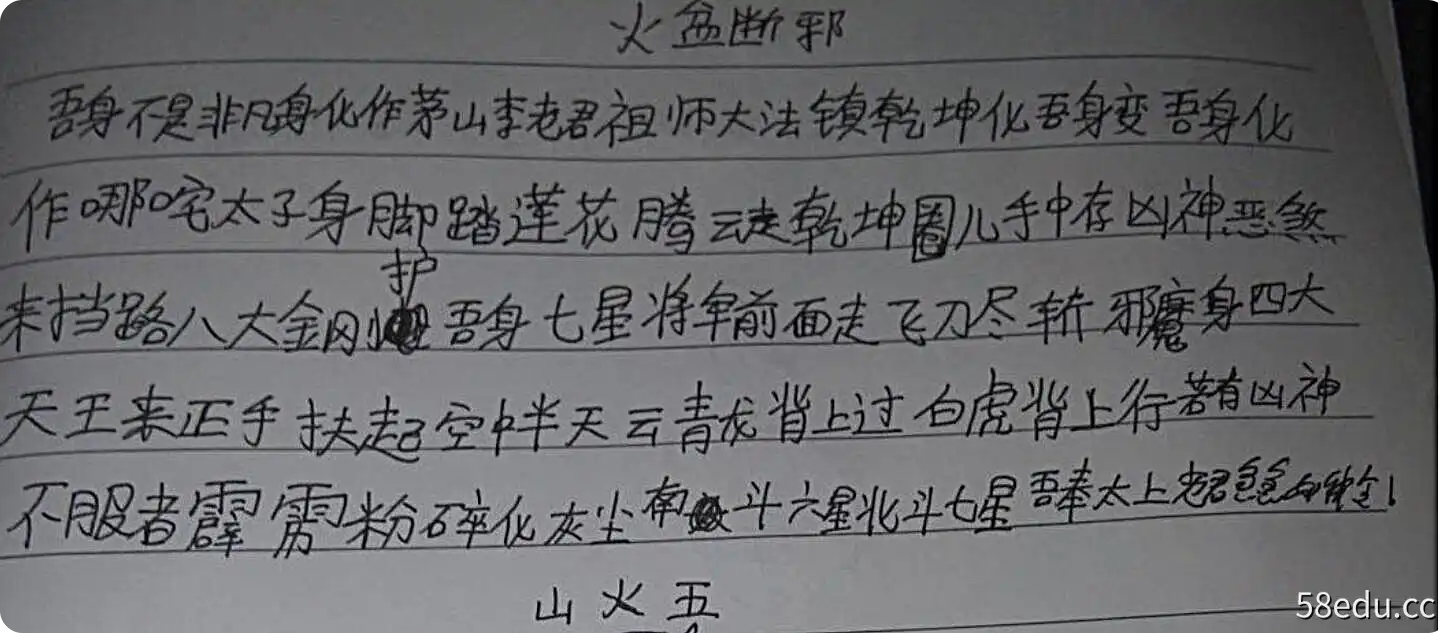 火盆断邪
吾身不是非凡身化作茅山李老君祖师大法镇乾坤化吾身变吾身化
作哪咤太子身脚踏莲花腾云走乾坤圈儿手中存凶神恶煞
来挡路八大金刚护吾身七星将军前面走飞刀尽斩邪魔身四大
天王来正手扶起空中半天云青龙背上过白虎背上行若有凶神
不服者霹雳粉碎化灰尘南斗六星北斗七星吾奉太上老君急急如律令!
山火五
58edu.cc